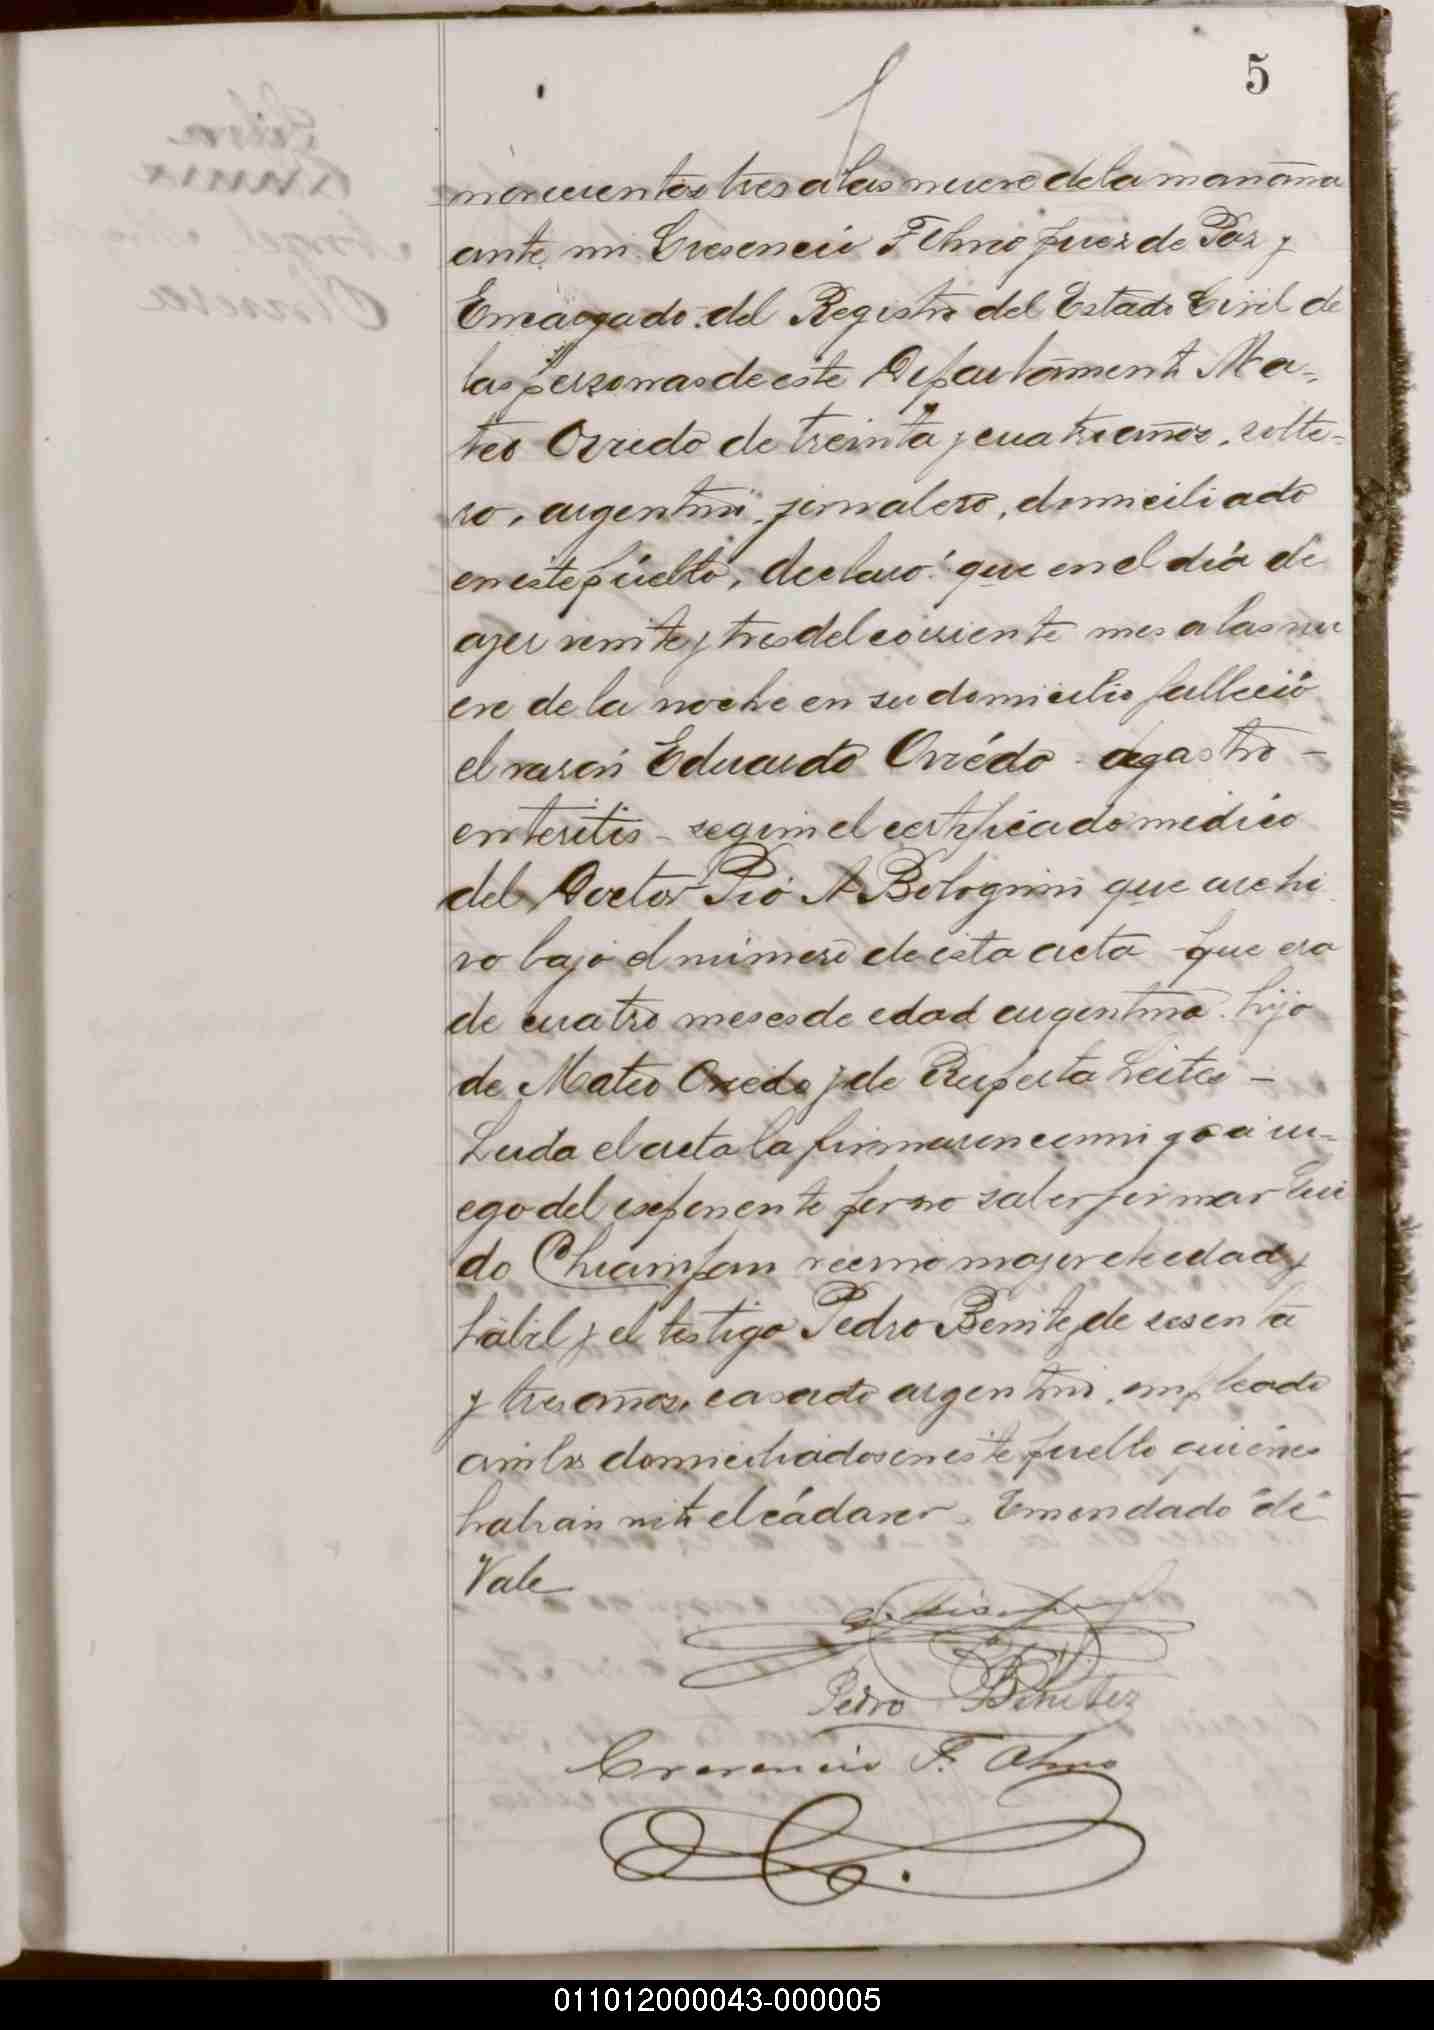 5
novecientos tres a las nueve de la mañana
ante mi Cresencio F. Olmo Juez de Paz y
Encargado del Registro del Estado Civil de
las personas de este Departamento Ma-
teo Oviedo de treinta y cuatro años, solte-
ro, argentino, jornalero, domiciliado
en este pueblo, declaró: que en el día de
ayer veinte y tres del corriente mes a las nu
eve de la noche en su domicilio falleció
el varón Eduardo Oviédo de gastro-
enteritis - segun el certificado médico
del Doctor Pio A Bolognini que archi
vo bajo el número de esta acta que era
de cuatro meses de edad argentino. hijo
de Mateo Oviedo y de Ruperta Leites -
Leida el acta la firmaron conmigo a ru-
ego del esponente por no saber firmar Gui
do Chiampan vecino mayor de edad y
hábil y el testigo Pedro Benitez de sesenta
y tres años, casado argentino, empleado
ambos domiciliados en este pueblo quiénes
habian visto el cádaver. Emendado "de"
Vale
Pedro Benitez
Cresencio F. Olmo
011012000043-000005